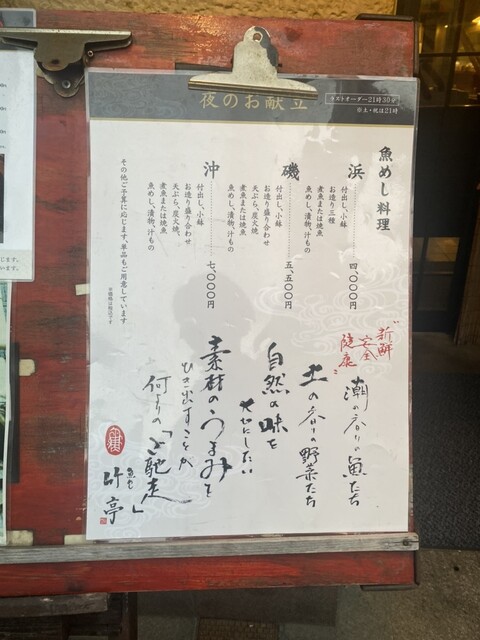 夜のお献立
ラストオーダー21時30分
※土・祝は21時
魚めし料理
浜 四、〇〇〇円
付出し、小鉢
お造り三種
煮魚または焼魚
魚めし、漬物、汁もの
磯 五、五〇〇円
付出し、小鉢
お造り盛り合わせ
天ぷら、炭火焼、
煮魚または焼魚
魚めし、漬物、汁もの
沖 七、〇〇〇円
付出し、小鉢
お造り盛り合わせ
天ぷら、炭火焼、
煮魚または焼魚
魚めし、漬物、汁もの
その他ご予算に応じます、単品もご用意しています
※価格は税込です
"新鮮
安全
健康"
潮の香りの魚たち
土の香りの野菜たち
自然の味を
大切にしたい
素材のうまみを
ひき出すことが
何よりの「ご馳走」
竹亭